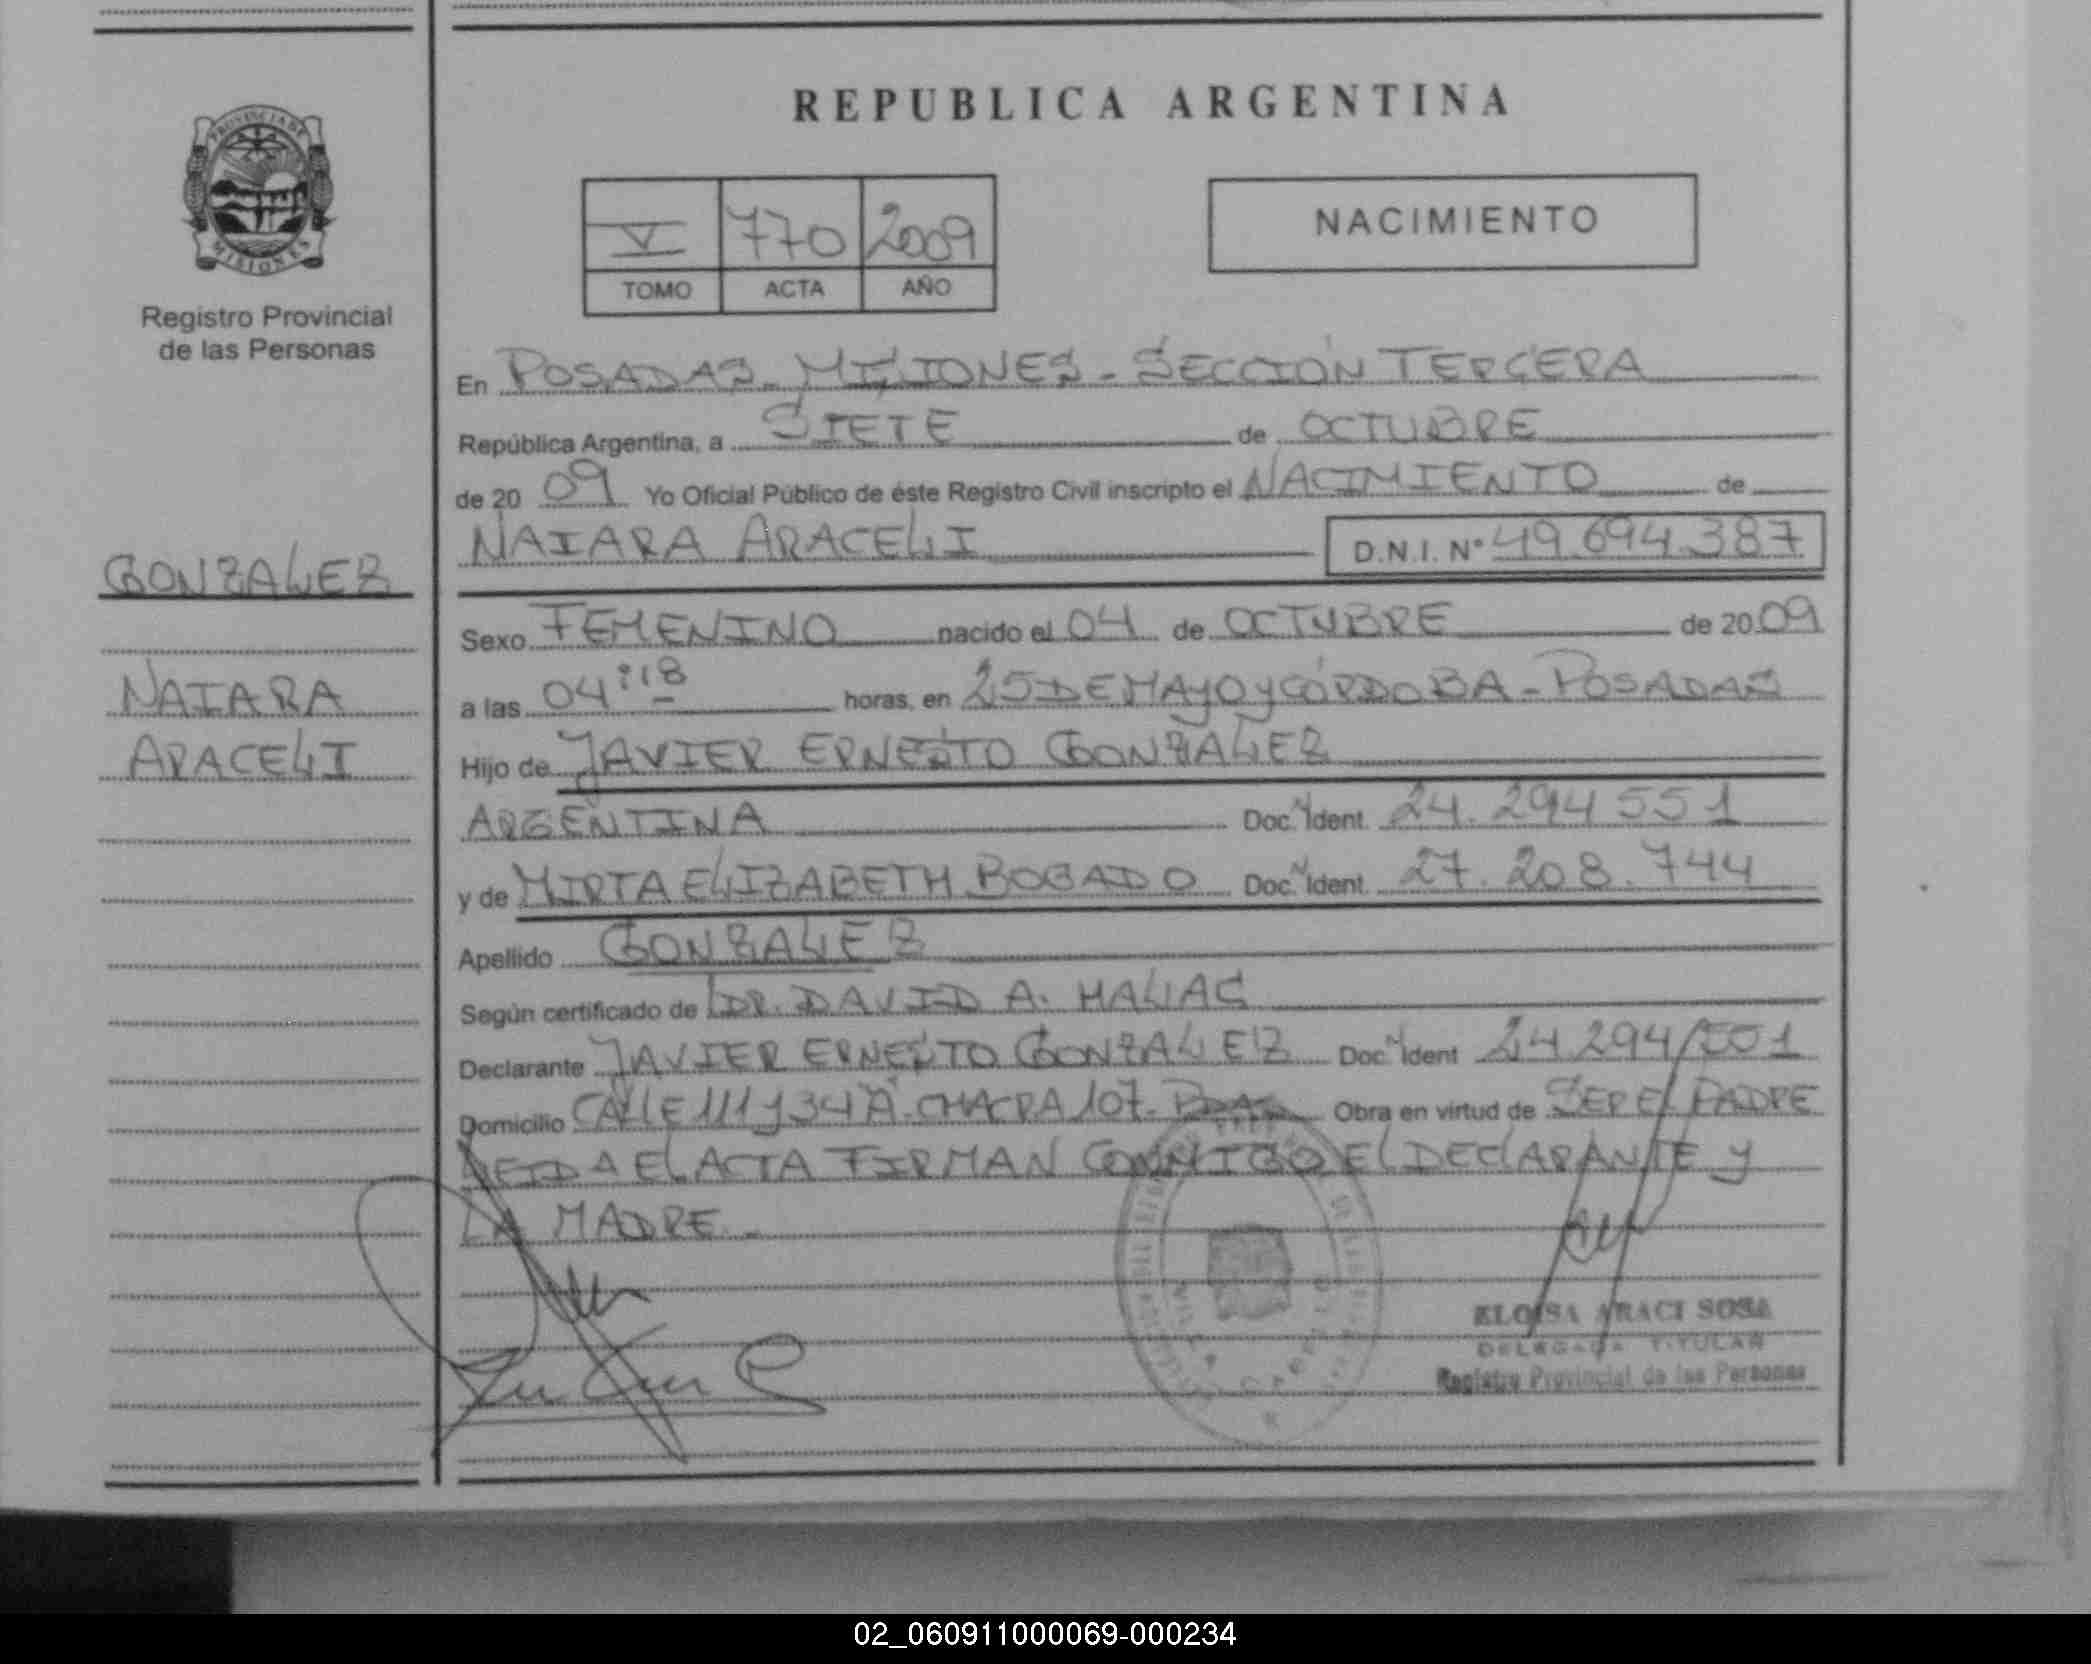 REPUBLICA ARGENTINA
PROVINCIA DE
MISIONES
Registro Provincial
de las Personas
V 770 2009
TOMO ACTA AÑO
NACIMIENTO
En POSADAS - MISIONES - SECCIÓN TERCERA
República Argentina, a SIETE de OCTUBRE
de 20 09 Yo Oficial Público de éste Registro Civil inscripto el NACIMIENTO de
NAIARA ARACELI D.N.I. Nº 49.694.387
GONZALEZ
NAIARA
ARACELI
Sexo FEMENINO nacido el 04 de OCTUBRE de 20 09
a las 04:18 horas, en 25 DE MAYO y CÓRDOBA - POSADAS
Hijo de JAVIER ERNESTO GONZALEZ
ARGENTINA Doc. Ident. 24.294.551
y de MIRTA ELIZABETH BOGADO Doc. Ident. 27.208.744
Apellido GONZALEZ
Según certificado de DR. DAVID A. MALIAC
Declarante JAVIER ERNESTO GONZALEZ Doc. Ident 24 294
Domicilio CALLE 111 y 34 A - CHACRA 107 - PDAS Obra en virtud de SER EL PADRE
LEIDA EL ACTA FIRMAN CONMIGO EL DECLARANTE y
LA MADRE. -
ELOISA ARACI SOSA
DELEGADA TITULAR
Registro Provincial de las Personas
02_060911000069-000234